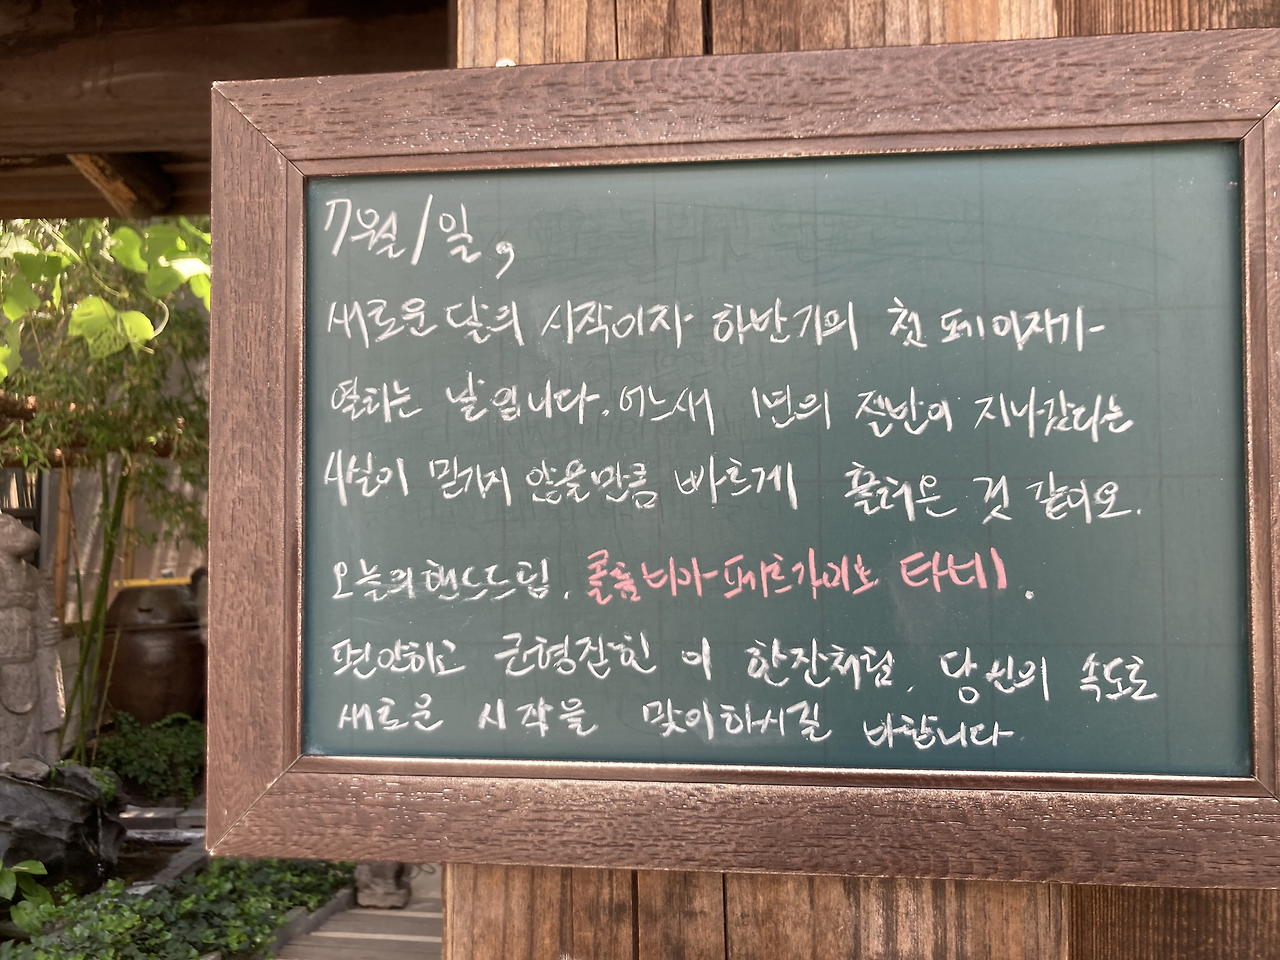 7월 1일,
새로운 달의 시작이자 하반기의 첫 페이지가
열리는 날입니다. 어느새 1년의 절반이 지나갔다는
사실이 믿기지 않을만큼 빠르게 흘러온 것 같아요.
오늘의 핸드드립. 콜롬비아 파트리시오 타비.
편안하고 균형잡힌 이 한잔처럼, 당신의 속도로
새로운 시작을 맞이하시길 바랍니다